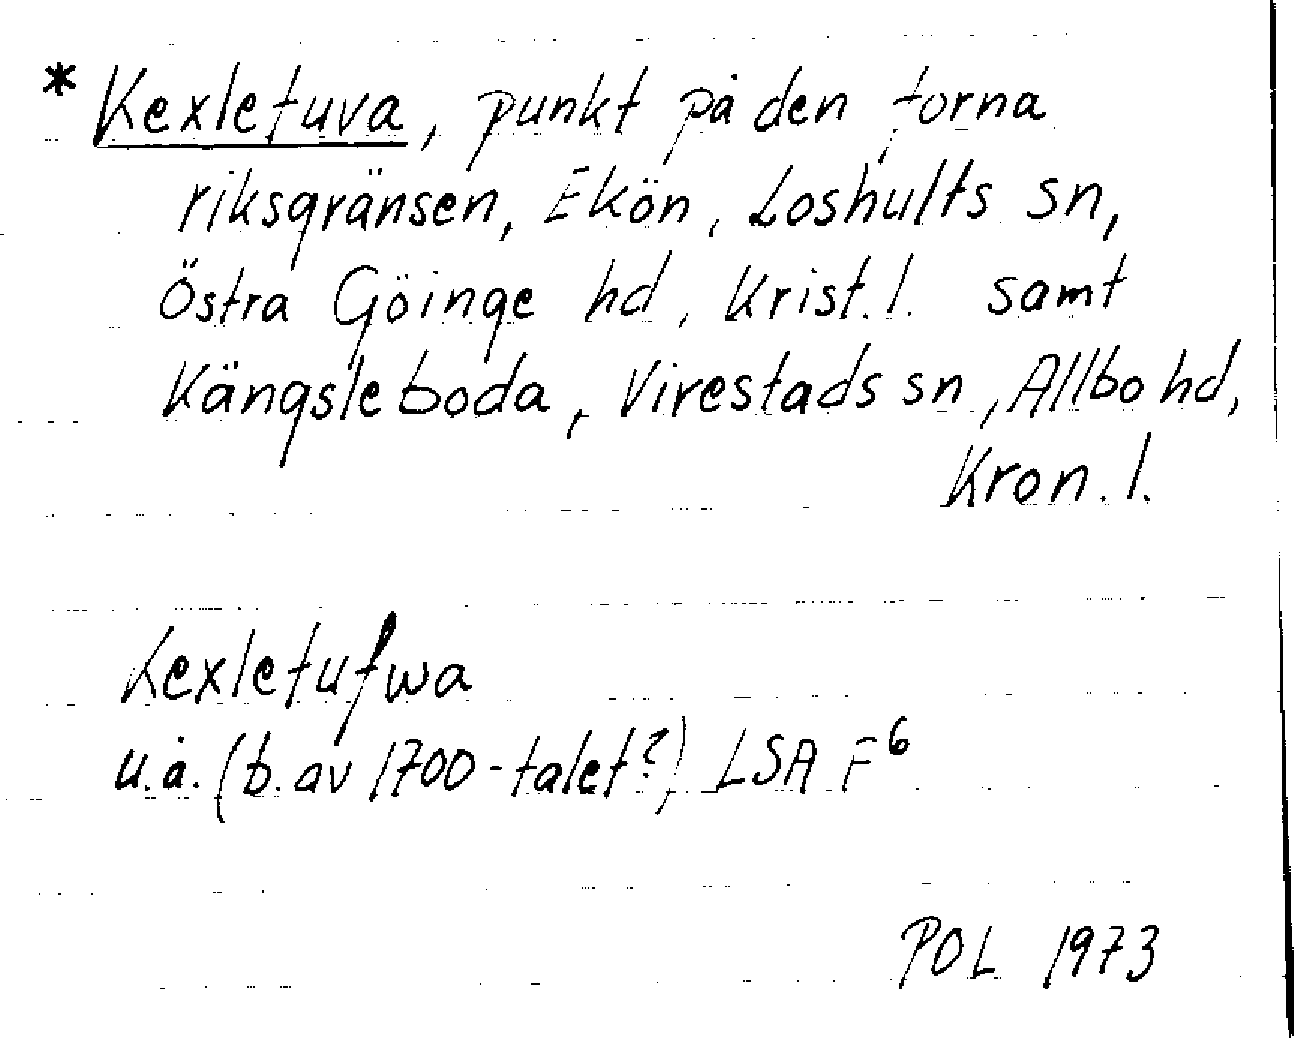 * Kexletuva, punkt på den forna
riksgränsen, Ekön, Loshults sn,
Östra Göinge hd, Krist. l. samt
Kängsleboda, Virestads sn, Allbo hd,
Kron. l.
Kexletufwa
u.å. (b. av 1700-talet?) LSA F⁶
POL 1973